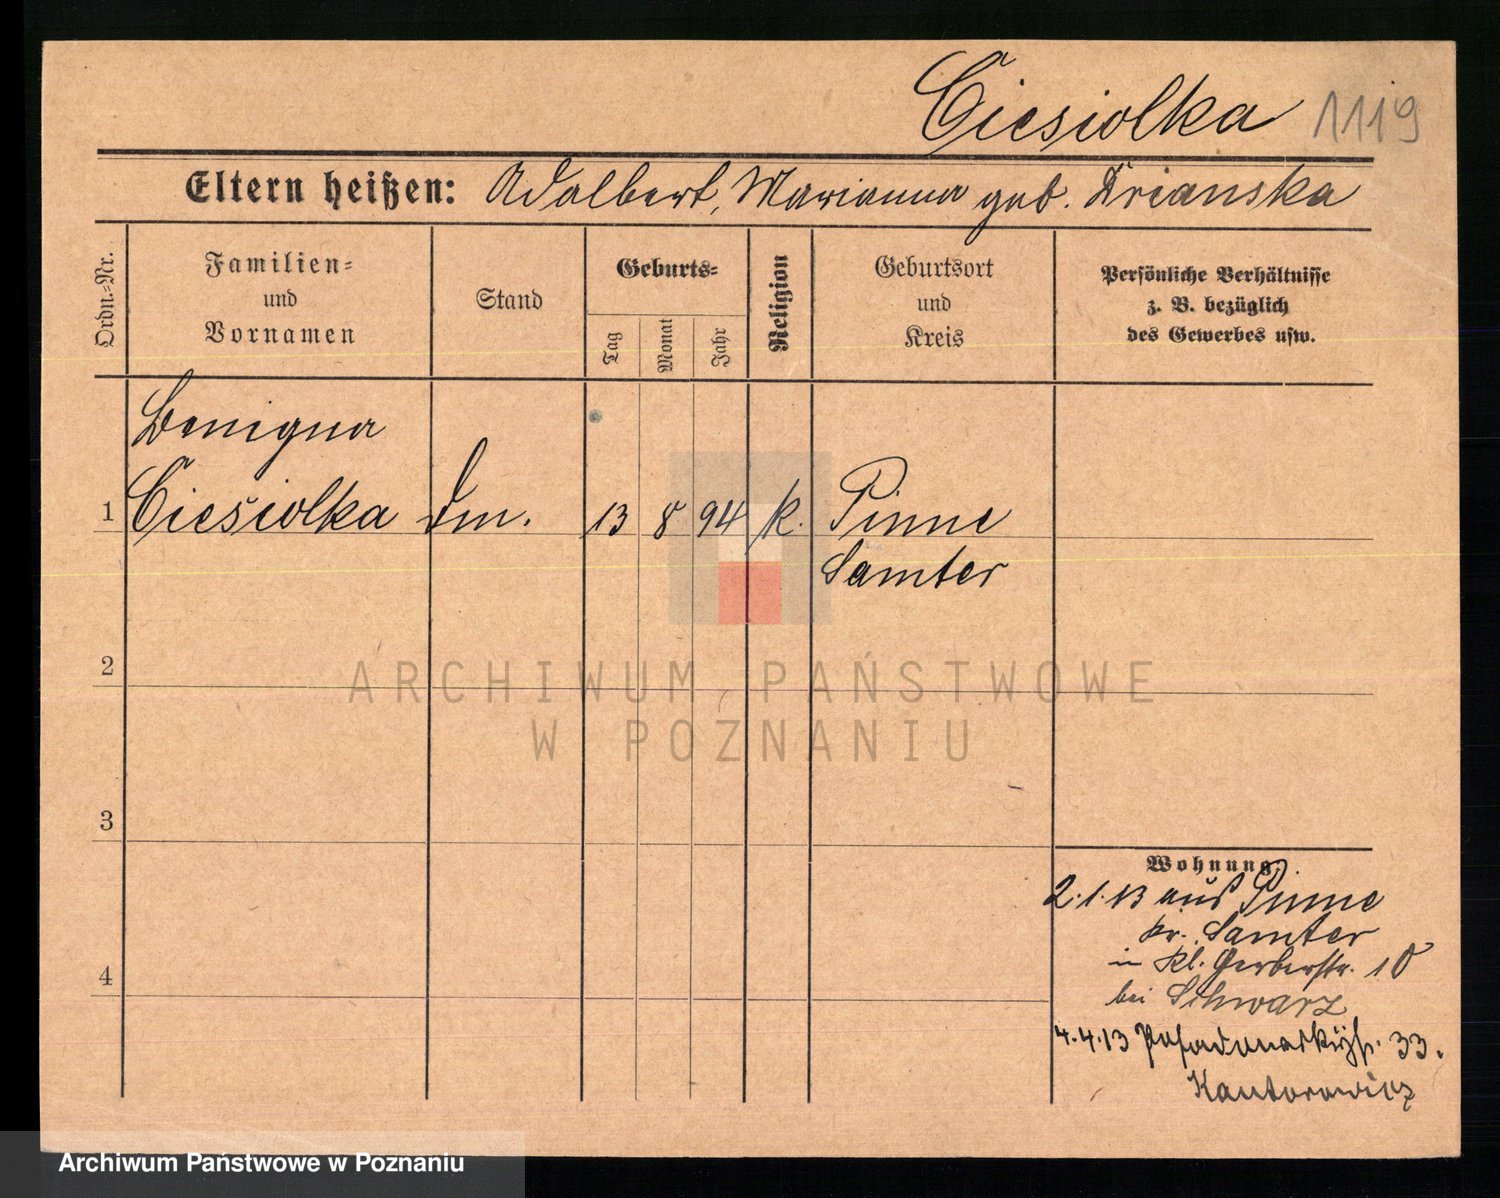 Ciesiolka 1119
Eltern heißen: Adalbert, Marianna geb. Drianska
Ordn.-Nr.
Familien-
und
Vornamen
Stand
Geburts-
Tag
Monat
Jahr
Religion
Geburtsort
und
Kreis
Persönliche Verhältnisse
z. B. bezüglich
des Gewerbes usw.
Benigna
1 Cieśiolka Dm. 13 8 94 k. Pinne
Samter
2
3
4
Wohnung.
2.1.13 aus Pinne
Kr. Samter
in Kl. Gerberstr. 10
bei Schwarz
4.4.13 33.
Kantorowicz
ARCHIWUM PAŃSTWOWE
W POZNANIU
Archiwum Państwowe w Poznaniu